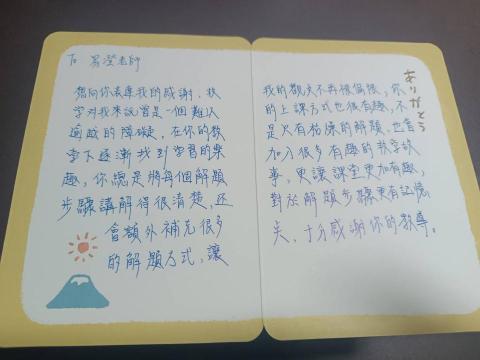 To 易瑩老師
想向你表達我的感謝，數
學對我來說曾是一個難以
逾越的障礙，在你的教
導下逐漸找到學習的樂
趣，你總是將每個解題
步驟講解得很清楚，还
會額外補充很多
的解題方式，讓
我的觀點不再很侷限，你
的上課方式也很有趣，不
是只有枯燥的解題，也會
加入很多有趣的数学故
事，更讓課堂更加有趣，
對於解題步驟更有記憶
点，十分感謝你的教導。
ありがとう